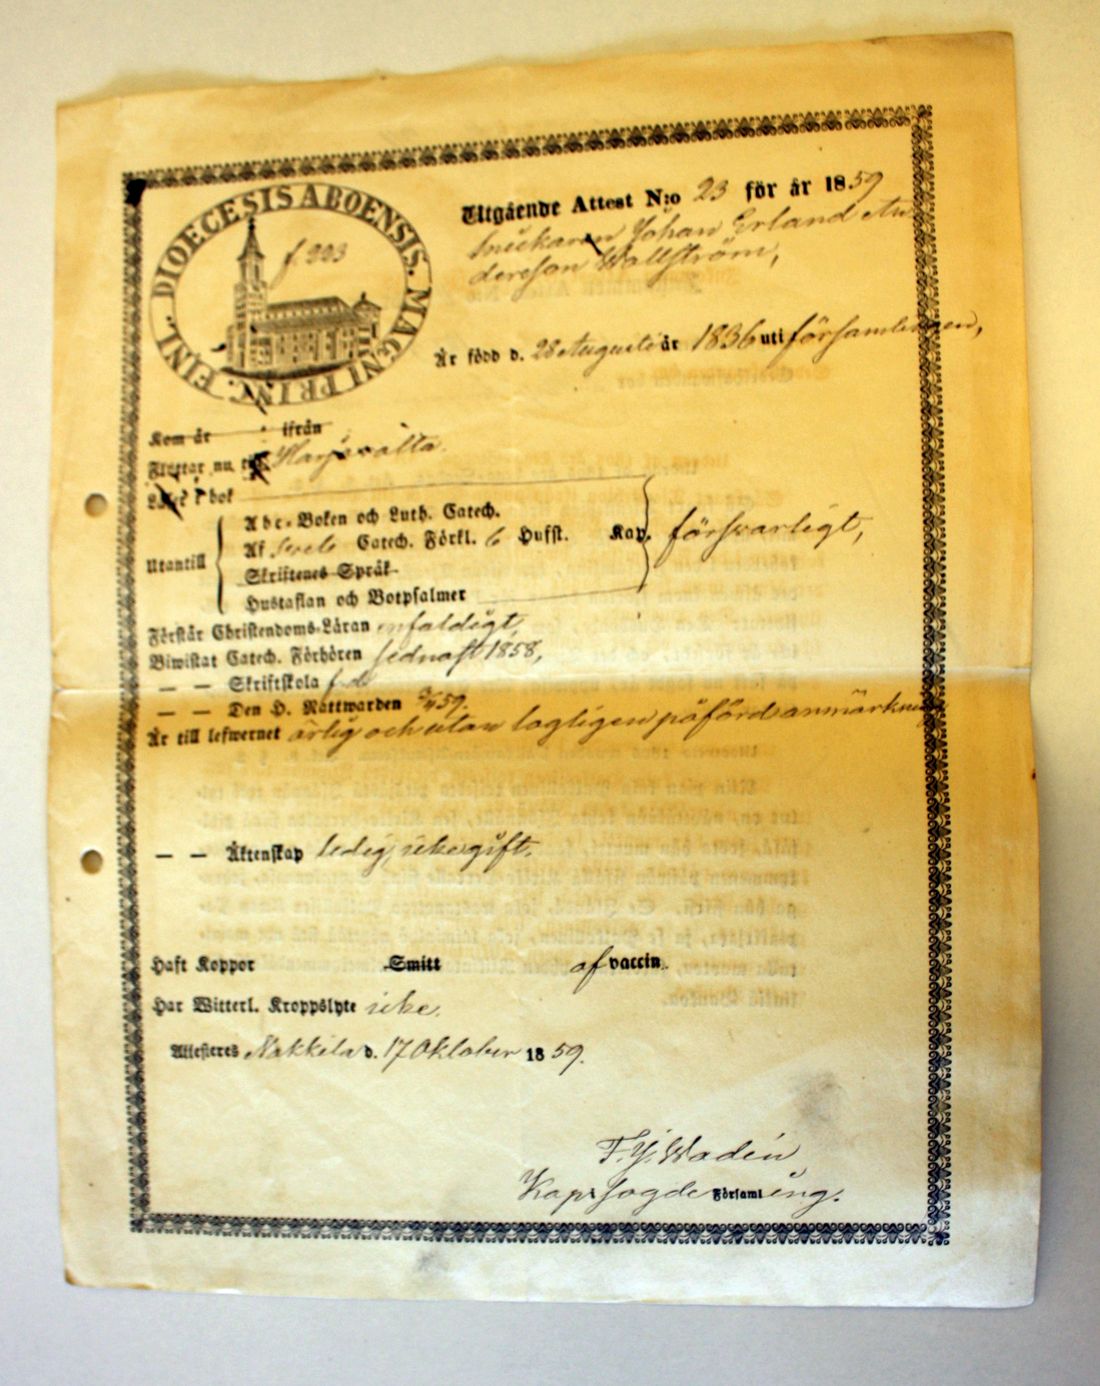 DIOECESIS ABOENSIS. MAGNI PRINC. FINL.
f. 203
Utgående Attest N:o 23 för år 1859
Snickaren Johan Erland An
dersson Wallström,
Är född d. 28 Augusti år 1836 uti församlingen,
Kom år ifrån
Flyttar nu till Harjavalta.
Läser i bok
Utantill
Abc-Boken och Luth. Catech.
Af Catech. Förkl. 6 Hufst. Kap.
försvarligt,
Skriftenes Språk
Hustaflan och Botpsalmer
Förstår Christendoms-Läran enfaldigt,
Biwistat Catech. Förhören sednast 1858,
— — Skriftskola
— — Den H. Nattwarden 59.
Är till lefwernet ärlig och utan lagligen påförd anmärkning
— — Äktenskap ledig, icke gift.
Haft Koppor Smitt af vaccin.
Har Witterl. Kroppslyte icke.
Attesteres Nakkila d. 17 Oktober 1859.
Wadén
Kap. i sagde Församling.